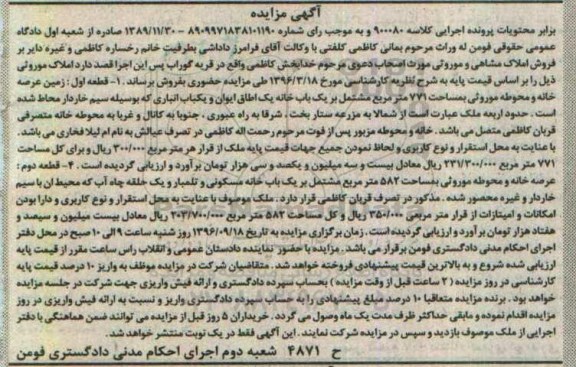 آگهی مزایده
برابر محتویات پرونده اجرایی کلاسه ۹۰۰۰۸۰ و به موجب رای شماره ۸۹۰۹۹۷۱۸۳۸۱۰۱۱۹۰ - ۱۳۸۹/۱۱/۳۰ صادره از شعبه اول دادگاه
عمومی حقوقی فومن له وراث مرحوم بمانی کاظمی کلفتی با وکالت آقای فرامرز داداشی بطرفیت خانم رخساره کاظمی و غیره دایر بر
فروش املاک مشاهی و موروثی مورث اصحاب دعوی مرحوم خدابخش کاظمی واقع در قریه گوراب پس این اجرا قصد دارد املاک موروثی
ذیل را بر اساس قیمت پایه به شرح نظریه کارشناسی مورخ ۱۳۹۶/۳/۱۸ طی مزایده حضوری بفروش برساند . ۱- قطعه اول : زمین عرصه
خانه و محوطه موروثی بمساحت ۷۷۱ متر مربع مشتمل بر یک باب خانه یک اطاق ایوان و یکباب انباری که بوسیله سیم خاردار محاط شده
است . حدود اربعه ملک عبارت است از شمالا به مزرعه ستار بخت . شرقا به راه عبوری . جنوبا به کانال و غربا به محوطه خانه متصرفی
قربان کاظمی متصل می باشد . خانه و محوطه مزبور پس از فوت مرحوم رحمت اله کاظمی در تصرف عیالش به نام ام لیلا فخاری می باشد .
با عنایت به محل استقرار و نوع کاربری و لحاظ نمودن جمیع جهات قیمت پایه ملک از قرار هر متر مربع ۳۰۰/۰۰۰ ریال و برای کل مساحت
۷۷۱ متر مربع ۲۳۱/۳۰۰/۰۰۰ ریال معادل بیست و سه میلیون و یکصد و سی هزار تومان برآورد و ارزیابی گردیده است . ۲- قطعه دوم :
عرصه خانه و محوطه موروثی بمساحت ۵۸۲ متر مربع مشتمل بر یک باب خانه مسکونی و تلمبار و یک حلقه چاه آب که محیط آن با سیم
خاردار و غیره محصور شده . مذکور در تصرف قربان کاظمی قرار دارد . ملک موصوف با عنایت به محل استقرار و نوع کاربری و دارا بودن
امکانات و امتیازات از قرار متر مربعی ۳۵۰/۰۰۰ ریال و کل مساحت ۵۸۲ متر مربع ۲۰۳/۷۰۰/۰۰۰ ریال معادل بیست میلیون و سیصد و
هفتاد هزار تومان برآورد و ارزیابی گردیده است . زمان برگزاری مزایده به تاریخ ۱۳۹۶/۰۹/۱۸ روز شنبه ساعت ۹ الی ۱۰ صبح در محل دفتر
اجرای احکام مدنی دادگستری فومن برقرار می باشد . مزایده با حضور نماینده دادستان عمومی و انقلاب راس ساعت مقرر از قیمت پایه
ارزیابی شده شروع و به بالاترین قیمت پیشنهادی فروخته خواهد شد . متقاضیان شرکت در مزایده موظف به واریز ۱۰ درصد قیمت پایه
کارشناسی در روز مزایده ( ۲ ساعت قبل از وقت مزایده ) بحساب سپرده دادگستری و ارائه فیش واریزی جهت شرکت در جلسه مزایده
خواهد بود . برنده مزایده متعاقبا ۱۰ درصد مبلغ پیشنهادی را به حساب سپرده دادگستری واریز و نسبت به ارائه فیش واریزی در روز
مزایده اقدام نموده و مابقی حداکثر ظرف مدت یک ماه وصول می گردد . خریداران ۵ روز قبل از مزایده می توانند ضمن هماهنگی با دفتر
اجرایی از ملک موصوف بازدید و سپس در مزایده شرکت نمایند . این آگهی فقط در یک نوبت منتشر خواهد شد.
ح ۴۸۷۱ شعبه دوم اجرای احکام مدنی دادگستری فومن